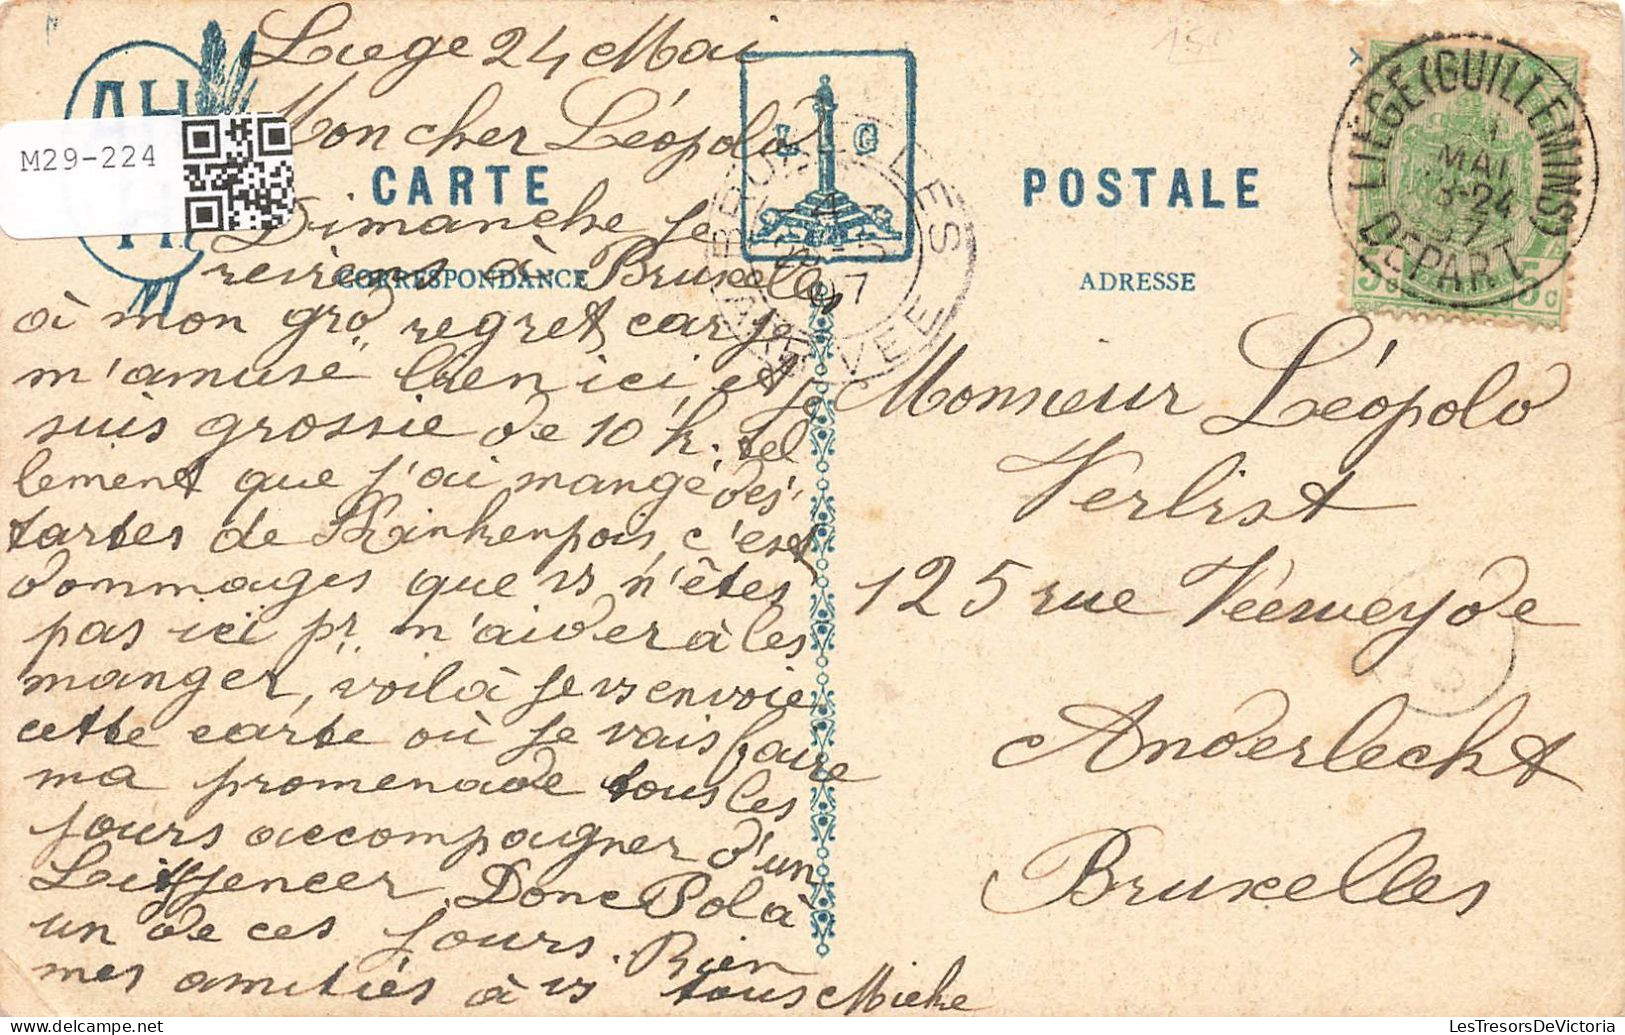 Liege 24 Mai
Mon cher Léopold
Dimanche je
reviens à Bruxelles
à mon gro regret car je
m'amuse bien ici, et je
suis grossie de 10 k. tel
lement que j'ai mangé des
tartes de Kinkenpois, c'est
dommages que vs n'êtes
pas ici pr m'aider à les
manger, voilà je vs envoie
cette carte où je vais faire
ma promenade tous les
jours accompagner d'un
Donc Pol à
un de ces jours. Bien
mes amitiés à vs tous Mieke
AH
M29-224
CARTE POSTALE
CORRESPONDANCE
ADRESSE
L G
BRUXELLES
ARRIVEE
LIÉGE (GUILLEMINS)
MAI
DEPART
5c 5c
Monsieur Léopold
Verlist
125 rue Véeweyde
Anderlecht
Bruxelles
LesTresorsDeVictoria